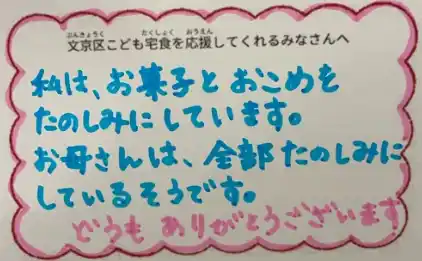 文京区こども宅食を応援してくれるみなさんへ
私は、お菓子とおこめを
たのしみにしています。
お母さんは、全部たのしみに
しているそうです。
どうもありがとうございます